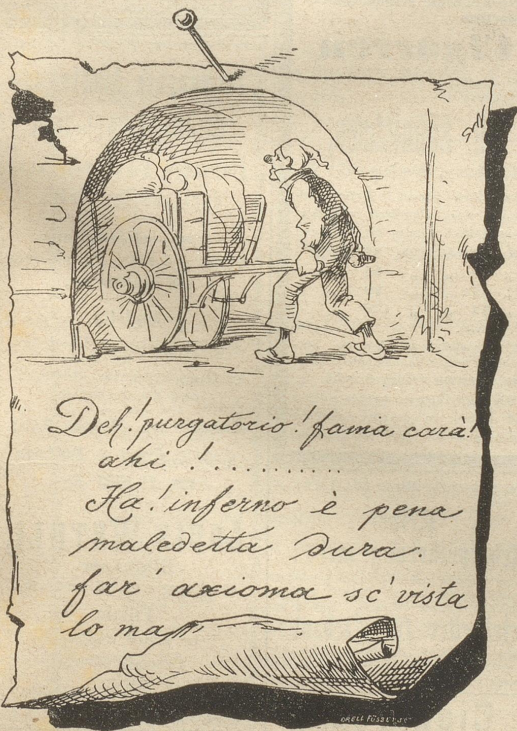 Deh! purgatorio! famia carà!
ahi !..........
Ha! inferno è pena
maledetta dura.
far' axioma sc' vista
lo ma
ORELL FÜSSLI